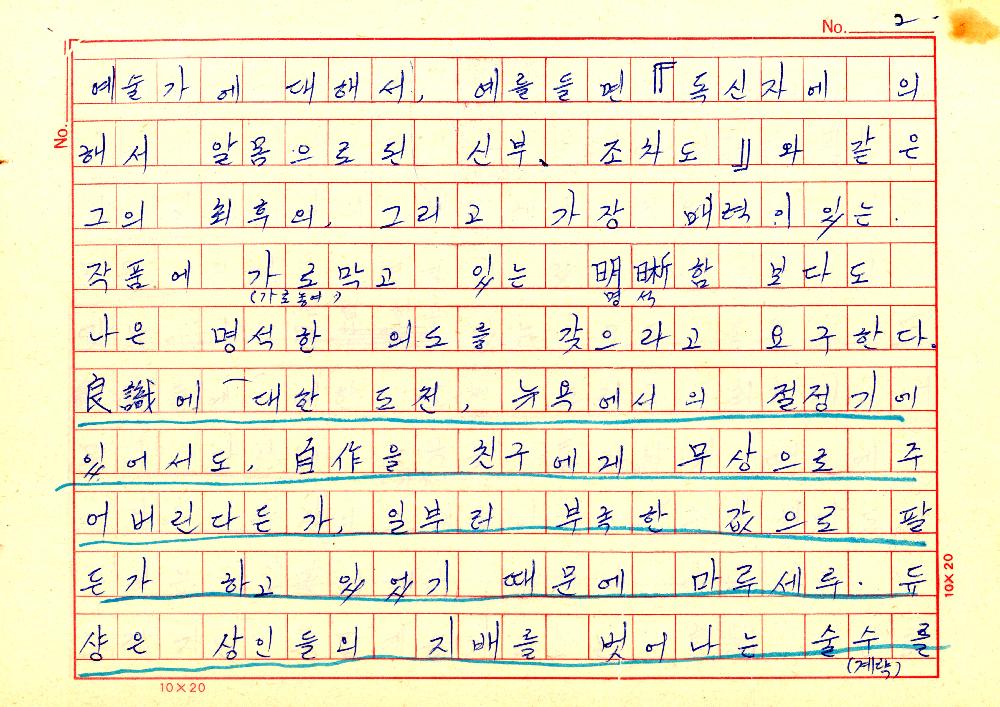 No. 2
No.
예술가에 대해서, 예를들면 『독신자에 의
해서 알몸으로된 신부、 조차도』와 같은
그의 최후의, 그리고 가장 매력이 있는.
작품에 가로막고 있는 明晰함 보다도
(가로놓여) 명석
나은 명석한 의도를 갖으라고 요구한다.
良識에 대한 도전, 뉴욕에서의 절정기에
있어서도, 自作을 친구에게 무상으로 주
어버린다든가, 일부러 부족한 값으로 팔
든가 하고 있었기 때문에 마루세루·듀
샹은 상인들의 지배를 벗어나는 술수를
(계략)
10×20
10×20